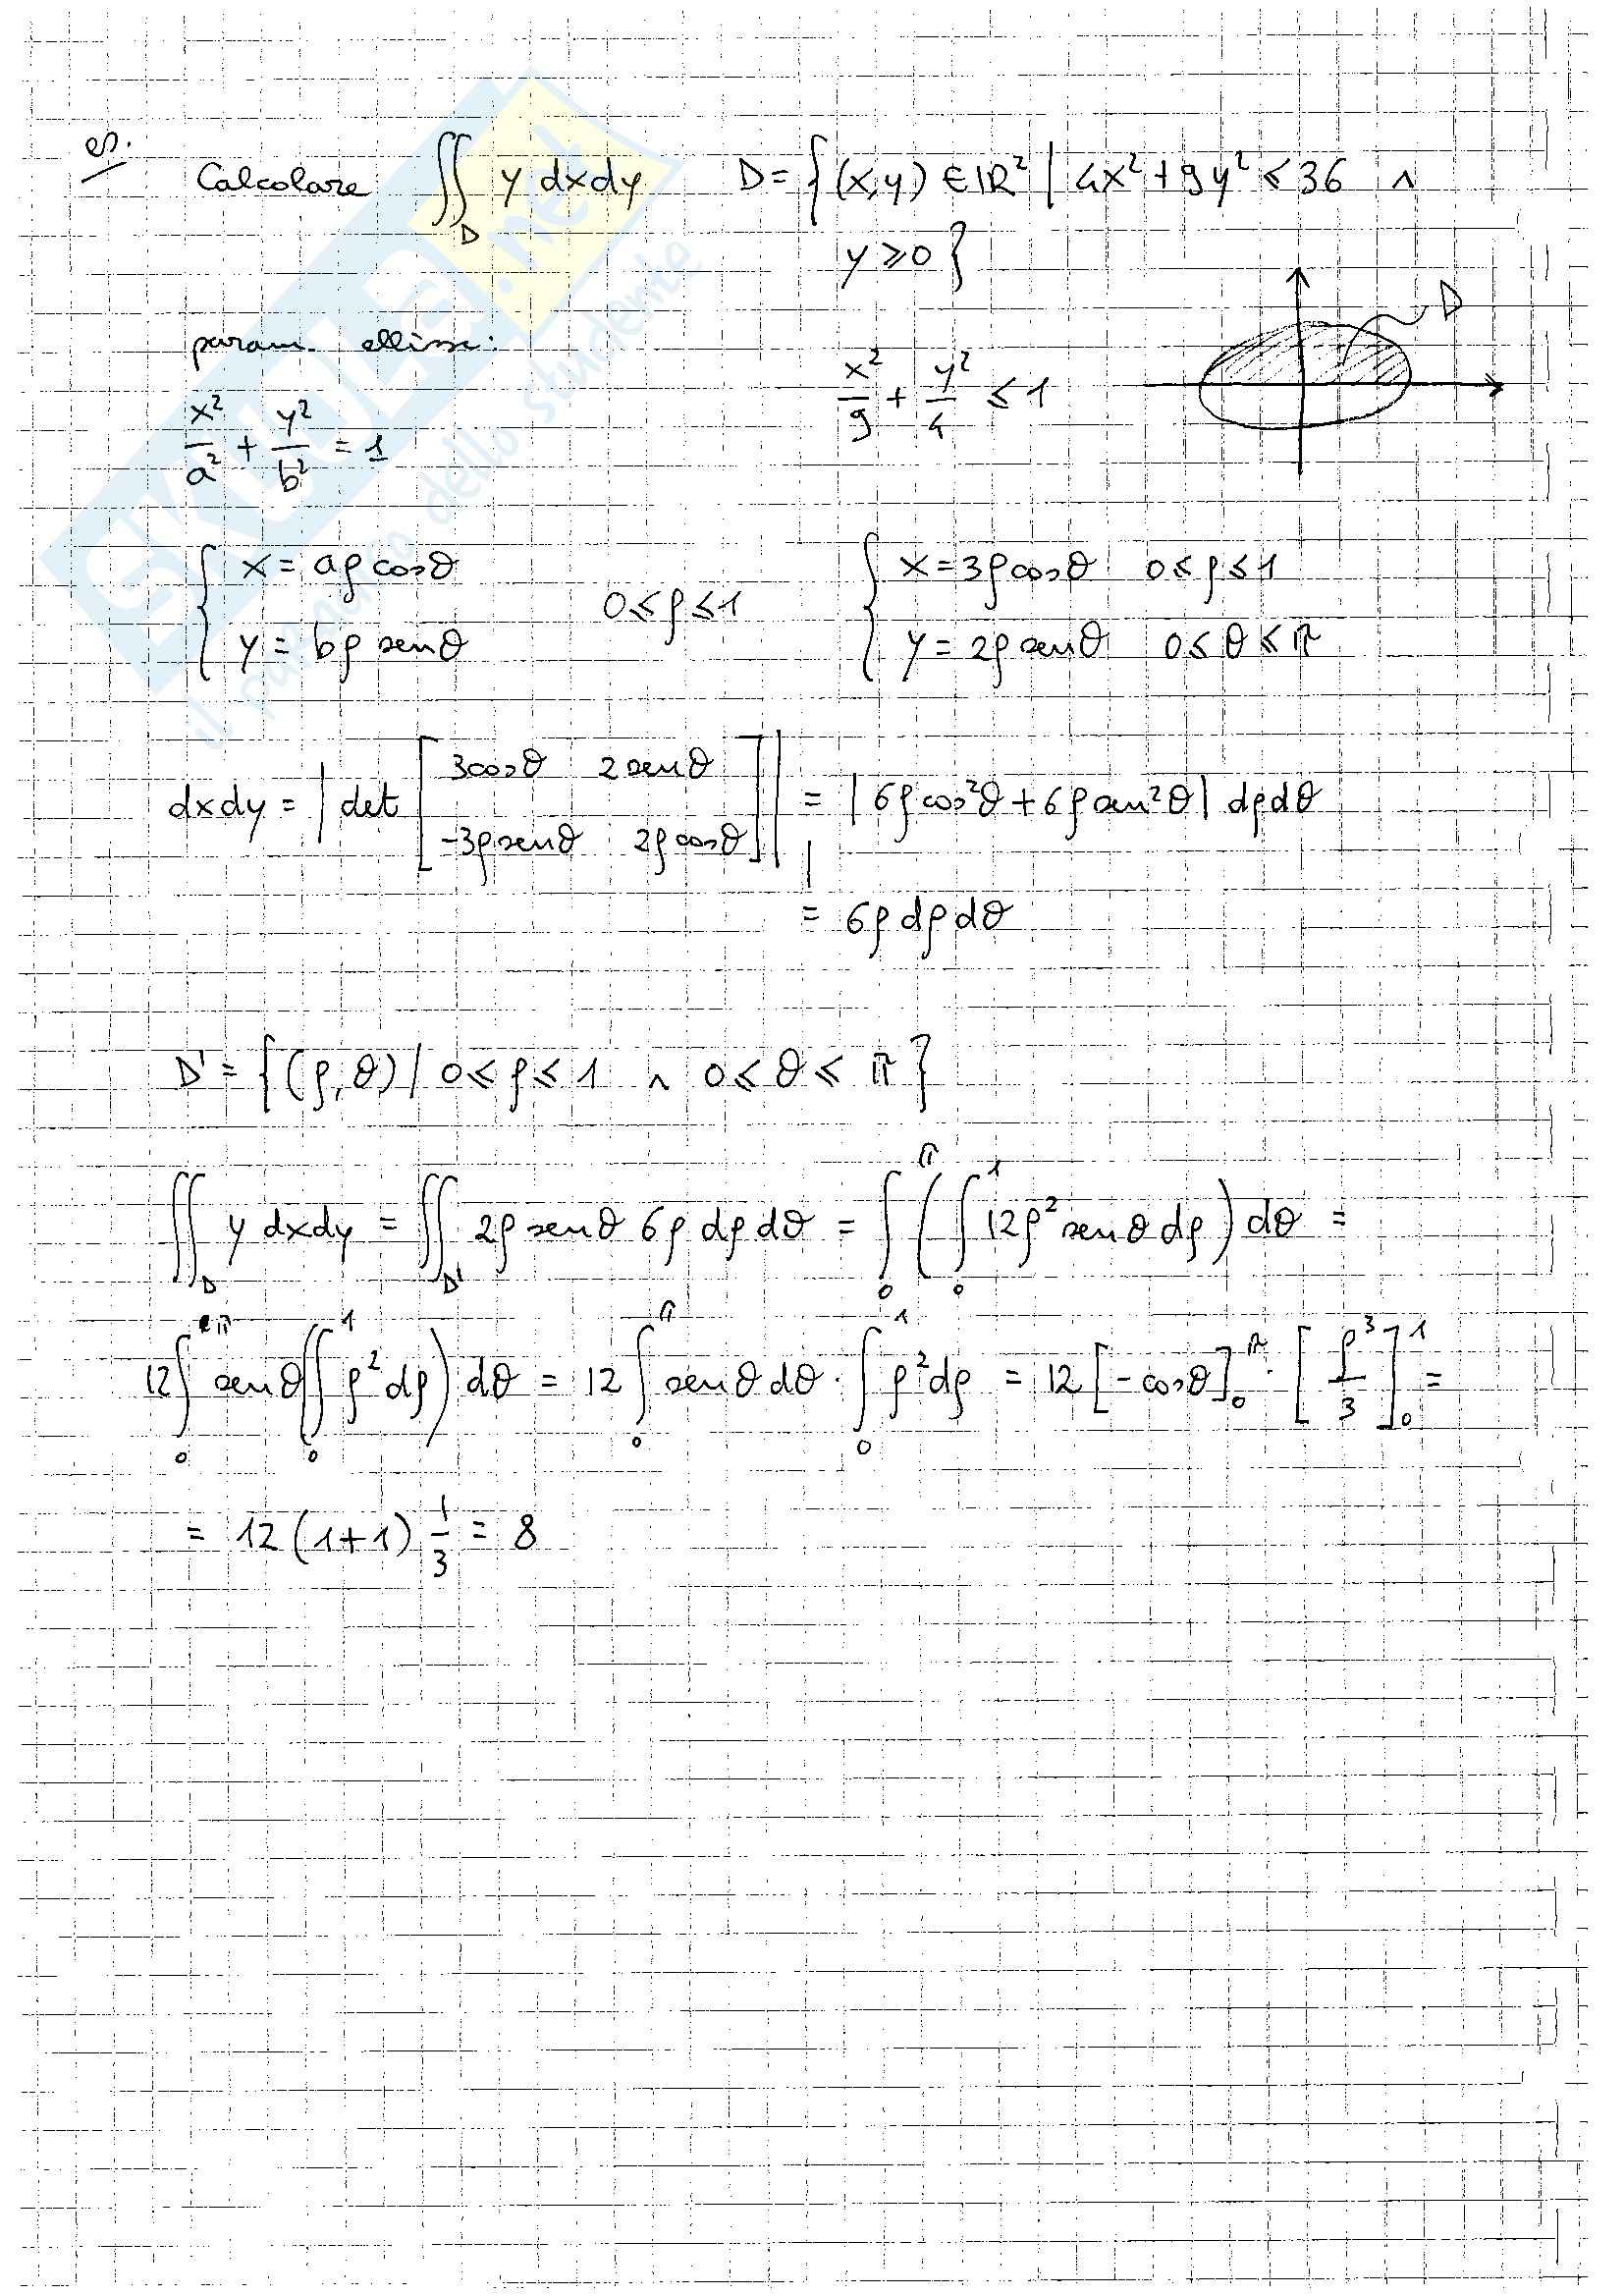 es.
Calcolare ∬_D y dxdy D = { (x,y) ∈ ℝ² | 4x² + 9y² ≤ 36 ∧
y ≥ 0 }
D
param. ellisse:
x²/a² + y²/b² = 1
x²/9 + y²/4 ≤ 1
{ x = aρ cosθ
y = bρ senθ
0 ≤ ρ ≤ 1
{ x = 3ρ cosθ 0 ≤ ρ ≤ 1
y = 2ρ senθ 0 ≤ θ ≤ π
dxdy = | det [ 3cosθ 2senθ
-3ρsenθ 2ρcosθ ] | = | 6ρcos²θ + 6ρsen²θ | dρdθ
= 6ρ dρ dθ
D' = { (ρ,θ) | 0 ≤ ρ ≤ 1 ∧ 0 ≤ θ ≤ π }
∬_D y dxdy = ∬_D' 2ρ senθ 6ρ dρ dθ = ∫_0^π ( ∫_0^1 12ρ² senθ dρ ) dθ =
12 ∫_0^π senθ ( ∫_0^1 ρ² dρ ) dθ = 12 ∫_0^π senθ dθ · ∫_0^1 ρ² dρ = 12 [ -cosθ ]_0^π · [ ρ³/3 ]_0^1 =
= 12 (1+1) 1/3 = 8
SKUOLA.net
il paradiso dello studente